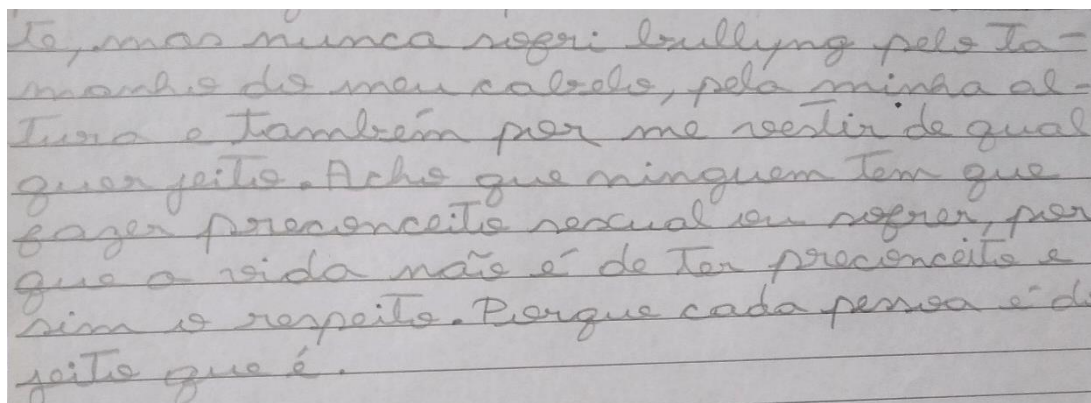 to, mas nunca sofri bullyng pelo ta-
manho do meu cabelo, pela minha al-
tura e também por me vestir de qual
quer jeito. Acho que ninguem tem que
fazer preconceito sexual ou sofrer, por
que a vida não é de ter preconceito e
sim o respeito. Porque cada pessoa é d
jeito que é.